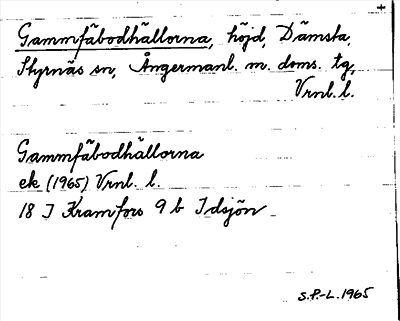 Gammfäbodhällorna, höjd, Dämsta,
Styrnäs sn, Ångermanl. m. doms. tg,
Vrnl. l.
Gammfäbodhällorna
ek (1965) Vrnl. l.
18 I Kramfors 9 b Idsjön
S.P.-L. 1965